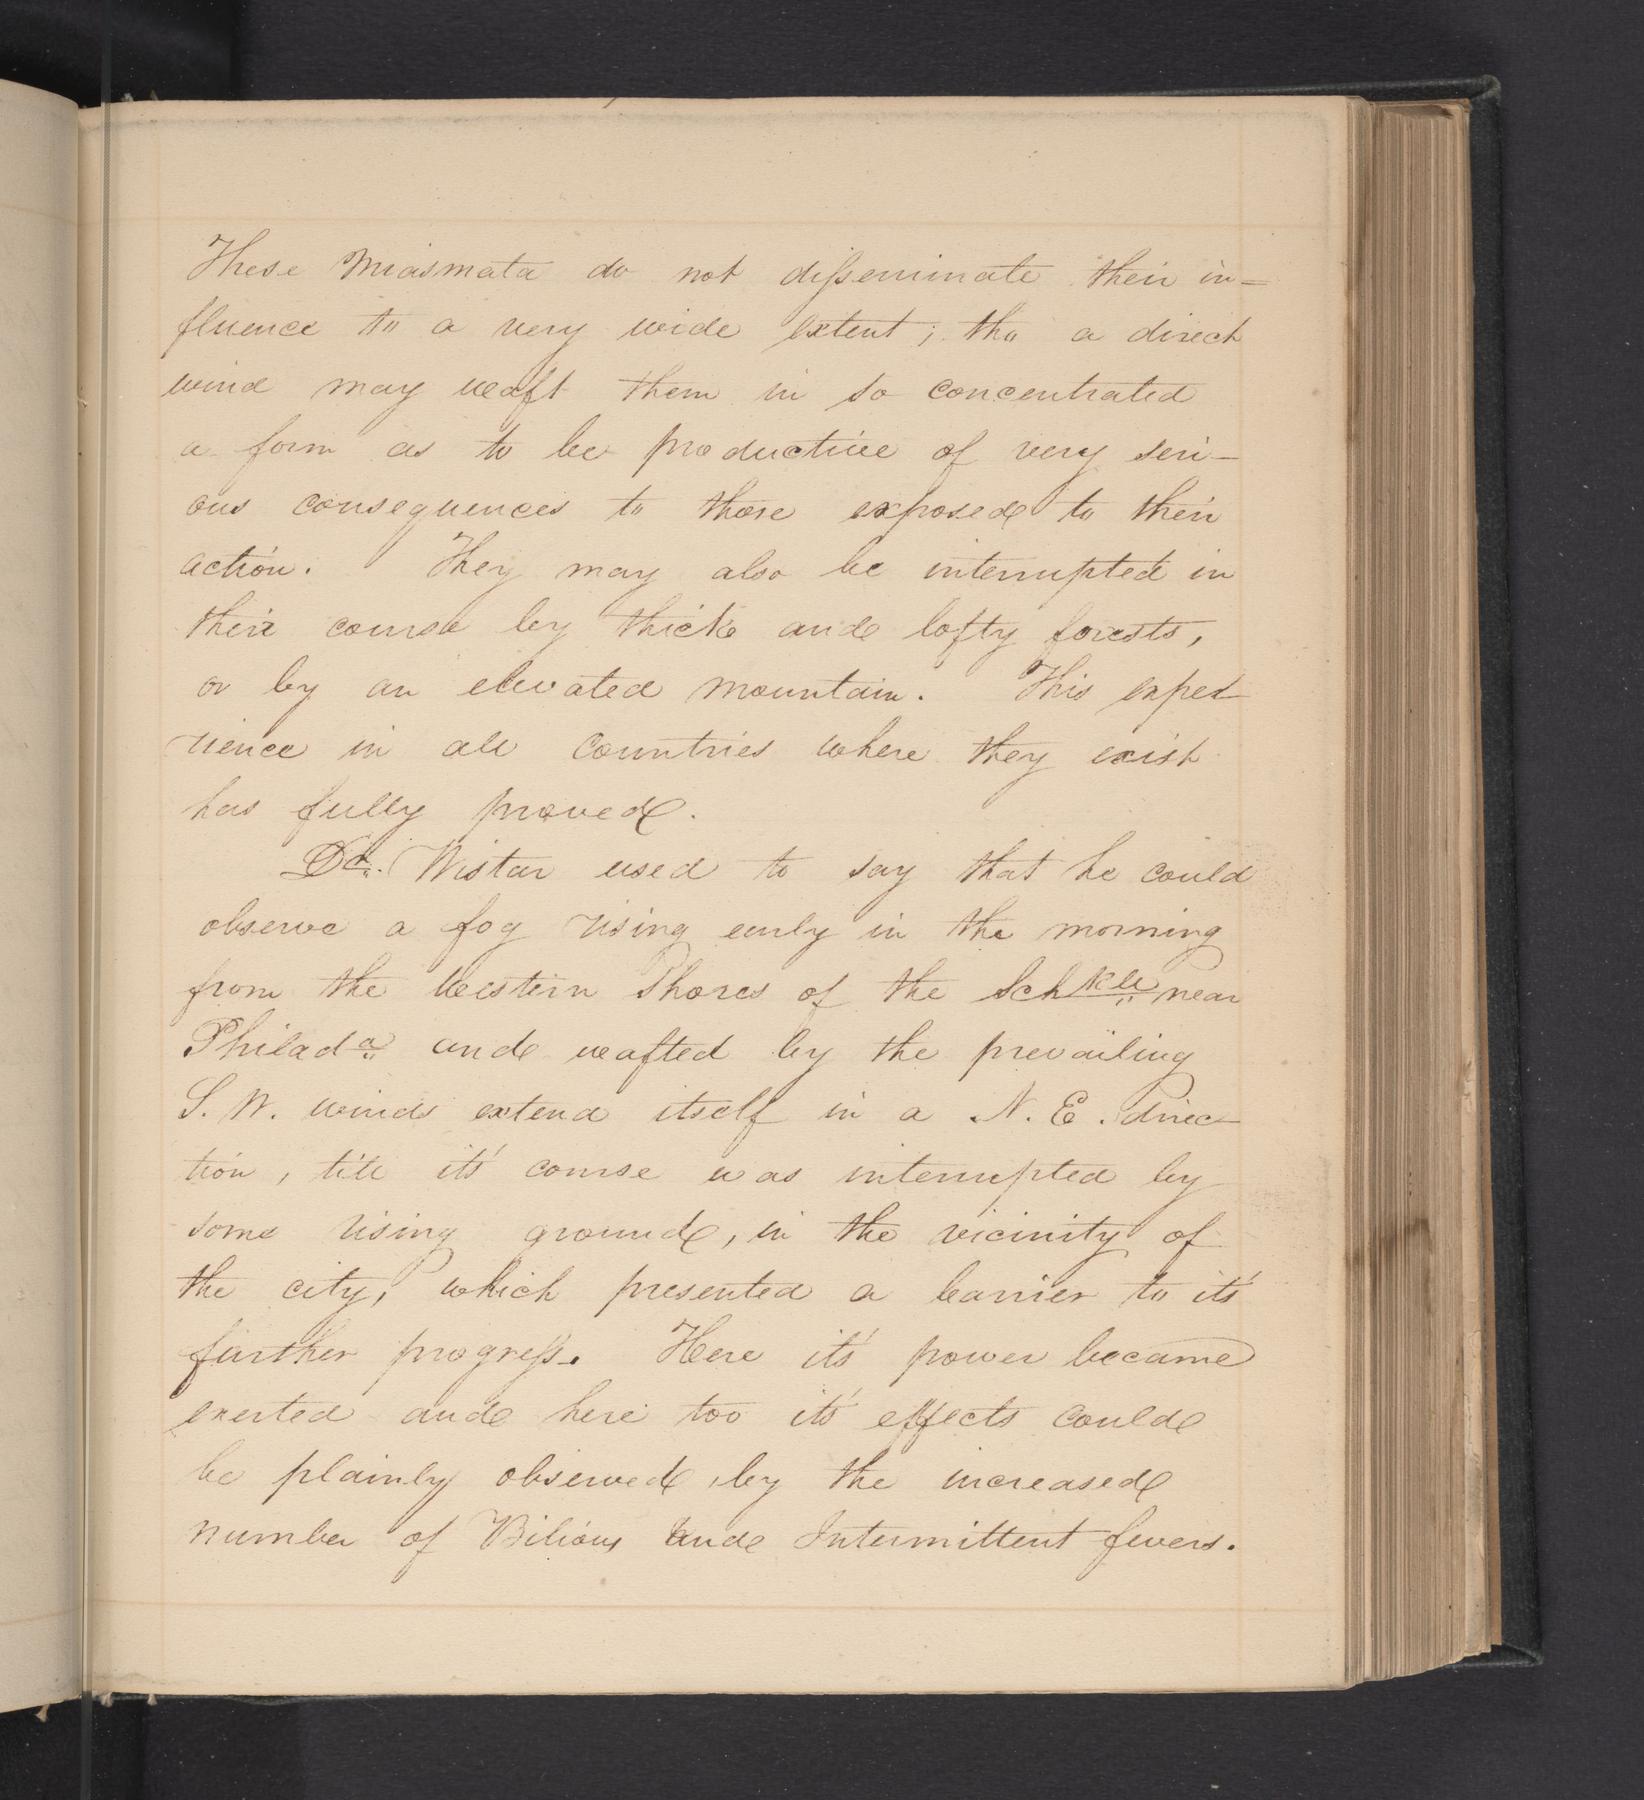 These Miasmata do not disseminate their in=
fluence to a very wide extent; tho a direct
wind may waft them in so concentrated
a form as to be productive of very seri-
ous consequences to those exposed to their
action. They may also be interrupted in
their course by thick and lofty forests,
or by an elevated mountain. This expe-
rience in all countries where they exist
has fully proved.
Dr. Wistar used to say that he could
observe a fog rising early in the morning
from the Western Shores of the Schkll near
Philada and wafted by the prevailing
S. W. winds extend itself in a N. E. direc-
tion, till it's course was interrupted by
some rising ground, in the vicinity of
the city, which presented a barrier to it's
further progress. Here it's power became
exerted and here too it's effects could
be plainly observed, by the increased
number of Bilious and Intermittent fevers.